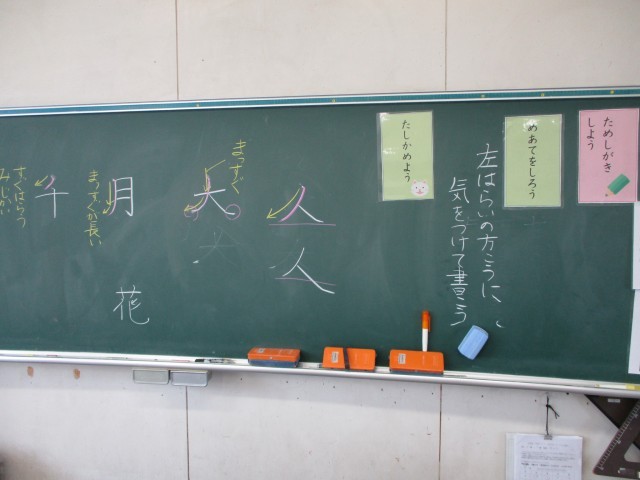 ためしがき
しよう
めあてをしろう
左はらいの方こうに、
気をつけて書こう
たしかめよう
人
人
まっすぐ
大
月
まっすぐが長い
花
千
すぐはらう
みじかい